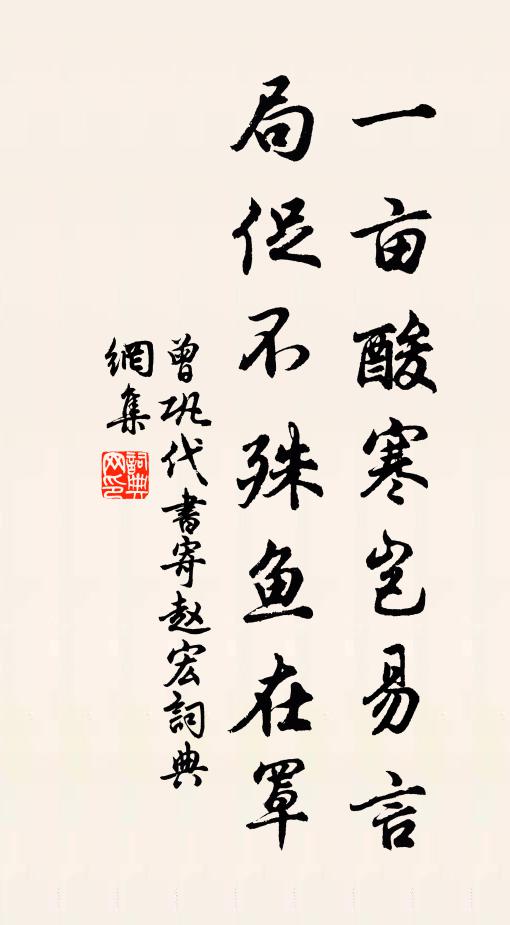 一亩酸寒岂易言
局促不殊鱼在罩
曾巩代書寄赵宏詞典
網集
詞典网印